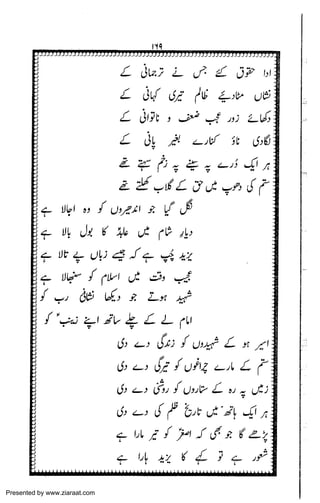 ۱۶۹
ادا حقوق کئے جس نے ترجمانی کے
نشاں مٹادیئے ظالم تیری کہانی کے
دکھائے زور عجب ضعف و ناتوانی کے
لگادی ناؤ کنارے بغیر پانی کے
ہر ایک دُرے پہ سینے پہ زخم سہتے تھے
ستم کی دھوپ میں حق کے گلاب کھلتے تھے
نگل گیا جو اندھیروں کو وہ اجالا ہے
دیار شام میں عابدؑ کا بول بالا ہے
یزید چُپ ہے کہ جیسے زباں پے تالا ہے
عجیب وقت میں اسلام کو سنبھالا ہے
شہید ہوتے جو دیکھا نشانیٔ رب کو
امام لے کے چلے ساتھ اپنے زینبؑ کو
اسیر ہو کے شہیدوں کو زندگی دے دی
ستم کے مارے چراغوں کو تیرگی دے دی
زمیں پہ رہ کے ستاروں کو روشنی دے دی
ہر ایک ہاتھ میں تاریخ ظلم کی دے دی
پڑھے گا جو بھی کہ اصغرؑ کو تیر مارا ہے
شعور ہے تو کہے گا یزید ہارا ہے
Presented by www.ziaraat.com